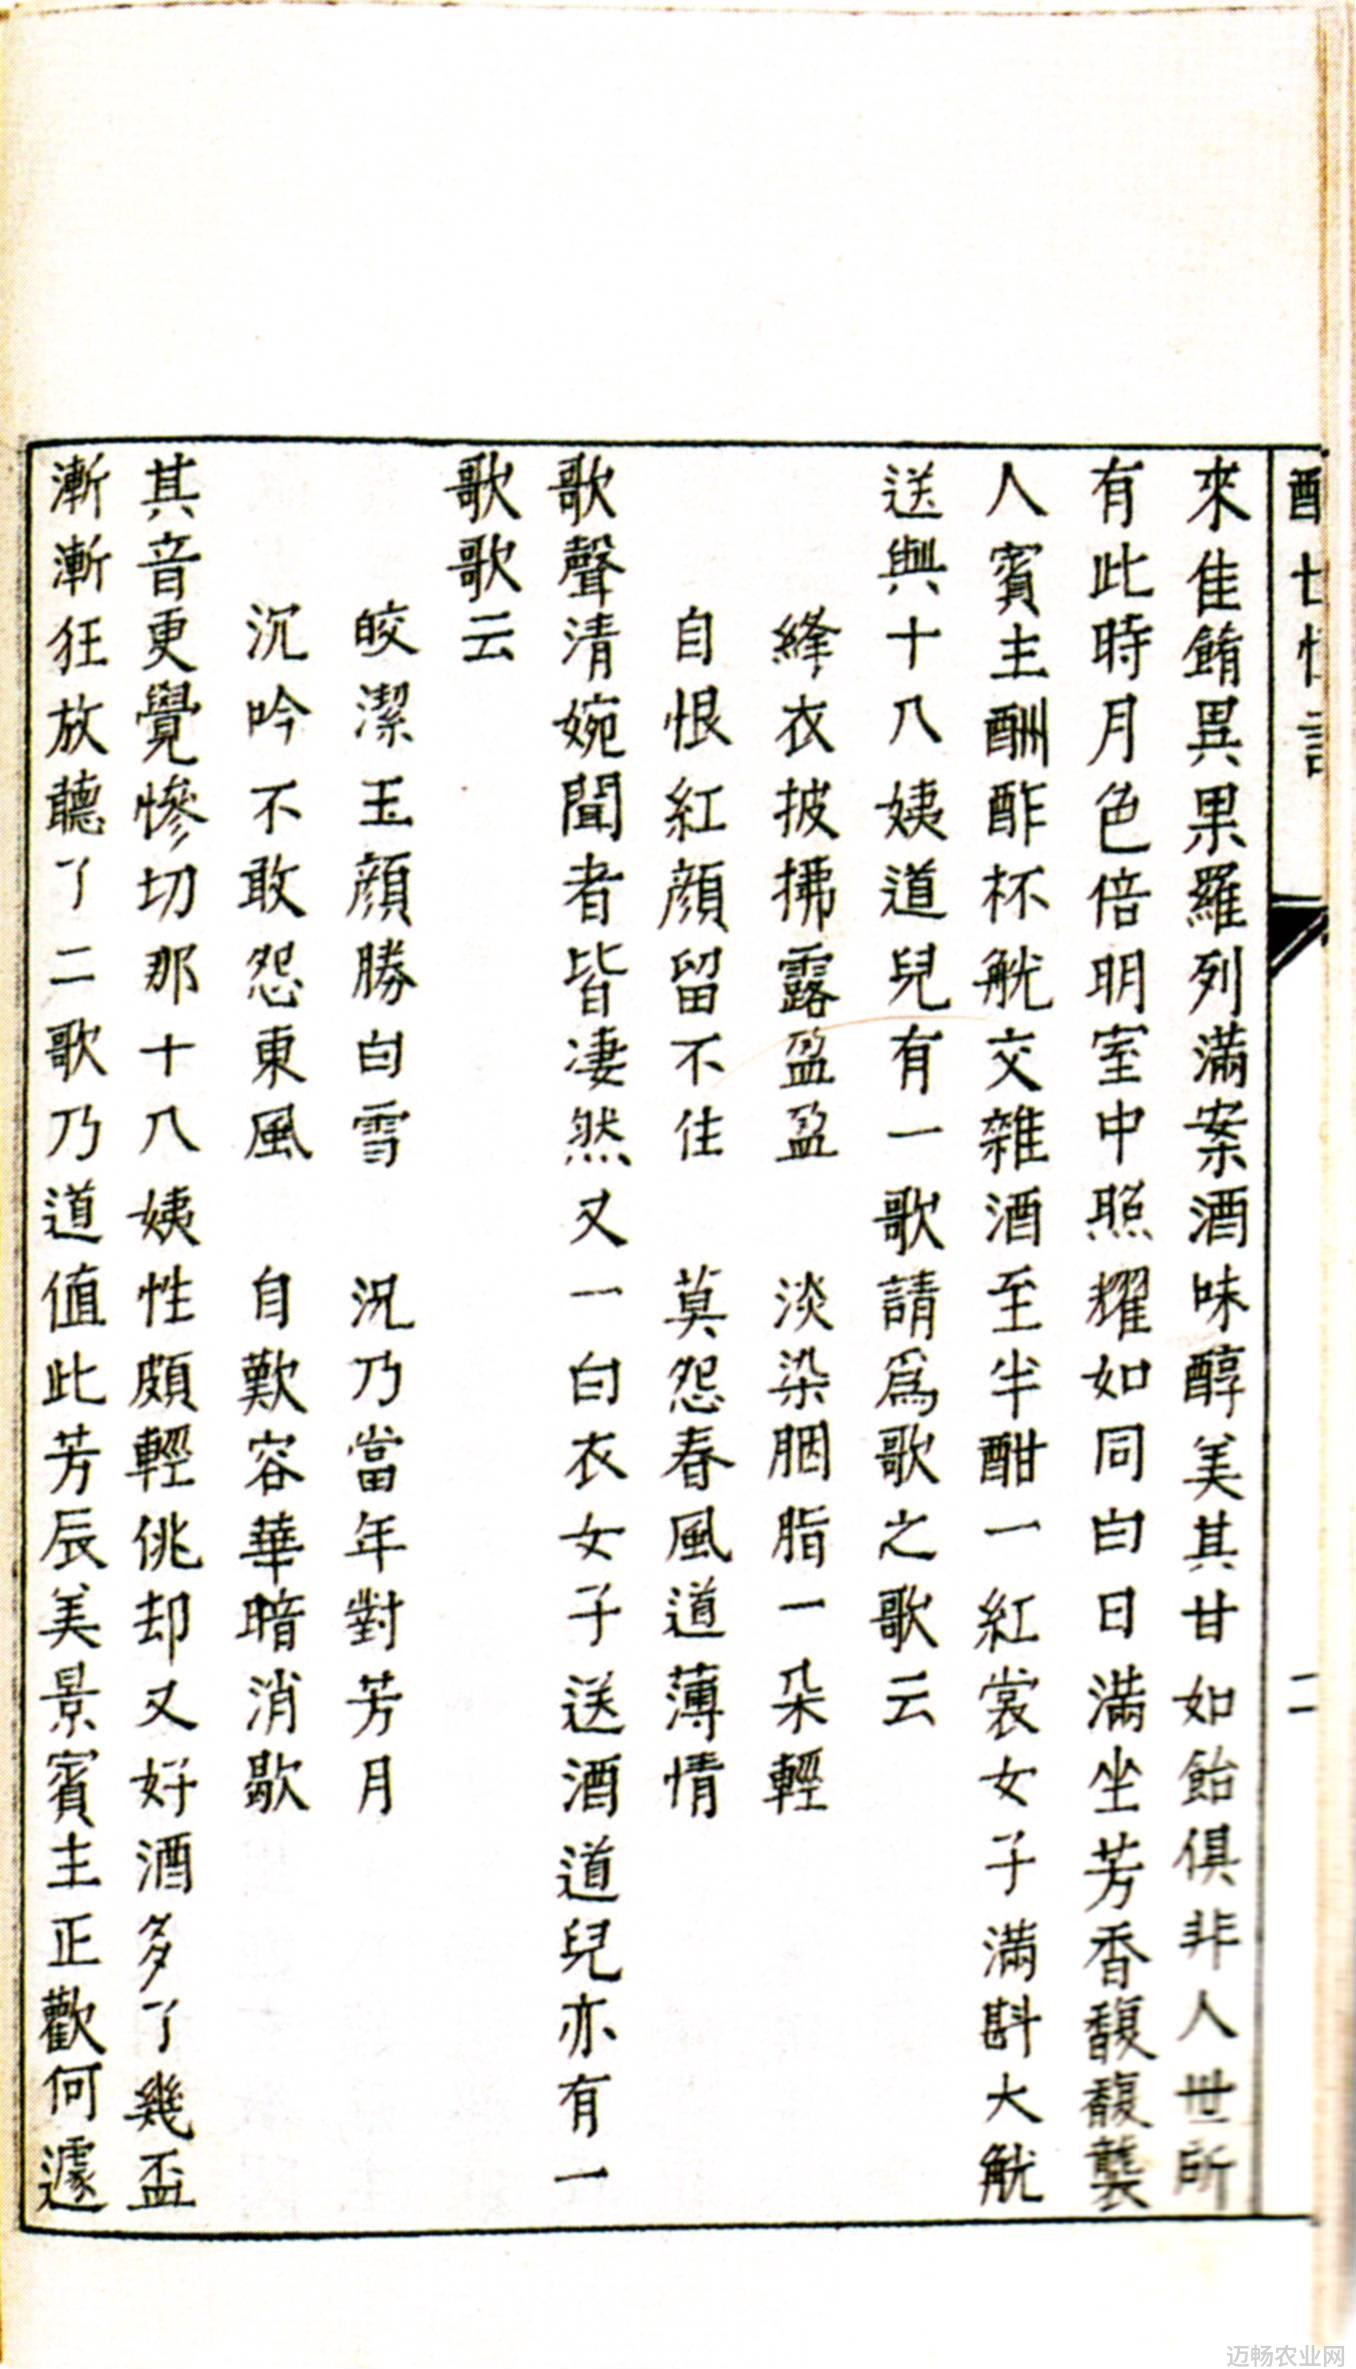 來佳餚異果羅列滿案酒味醇美其甘如飴俱非人世所
有此時月色倍明室中照耀如同白日滿坐芳香馥馥襲
人賓主酬酢杯觥交雜酒至半酣一紅裳女子滿斟大觥
送與十八姨道兒有一歌請爲歌之歌云
絳衣披拂露盈盈　淡染胭脂一朵輕
自恨紅顔留不住　莫怨春風道薄情
歌聲清婉聞者皆凄然又一白衣女子送酒道兒亦有一
歌歌云
皎潔玉顔勝白雪　況乃當年對芳月
沉吟不敢怨東風　自歎容華暗消歇
其音更覺慘切那十八姨性頗輕佻却又好酒多了幾盃
漸漸狂放聽了二歌乃道值此芳辰美景賓主正歡何遽
二
迈畅农业网